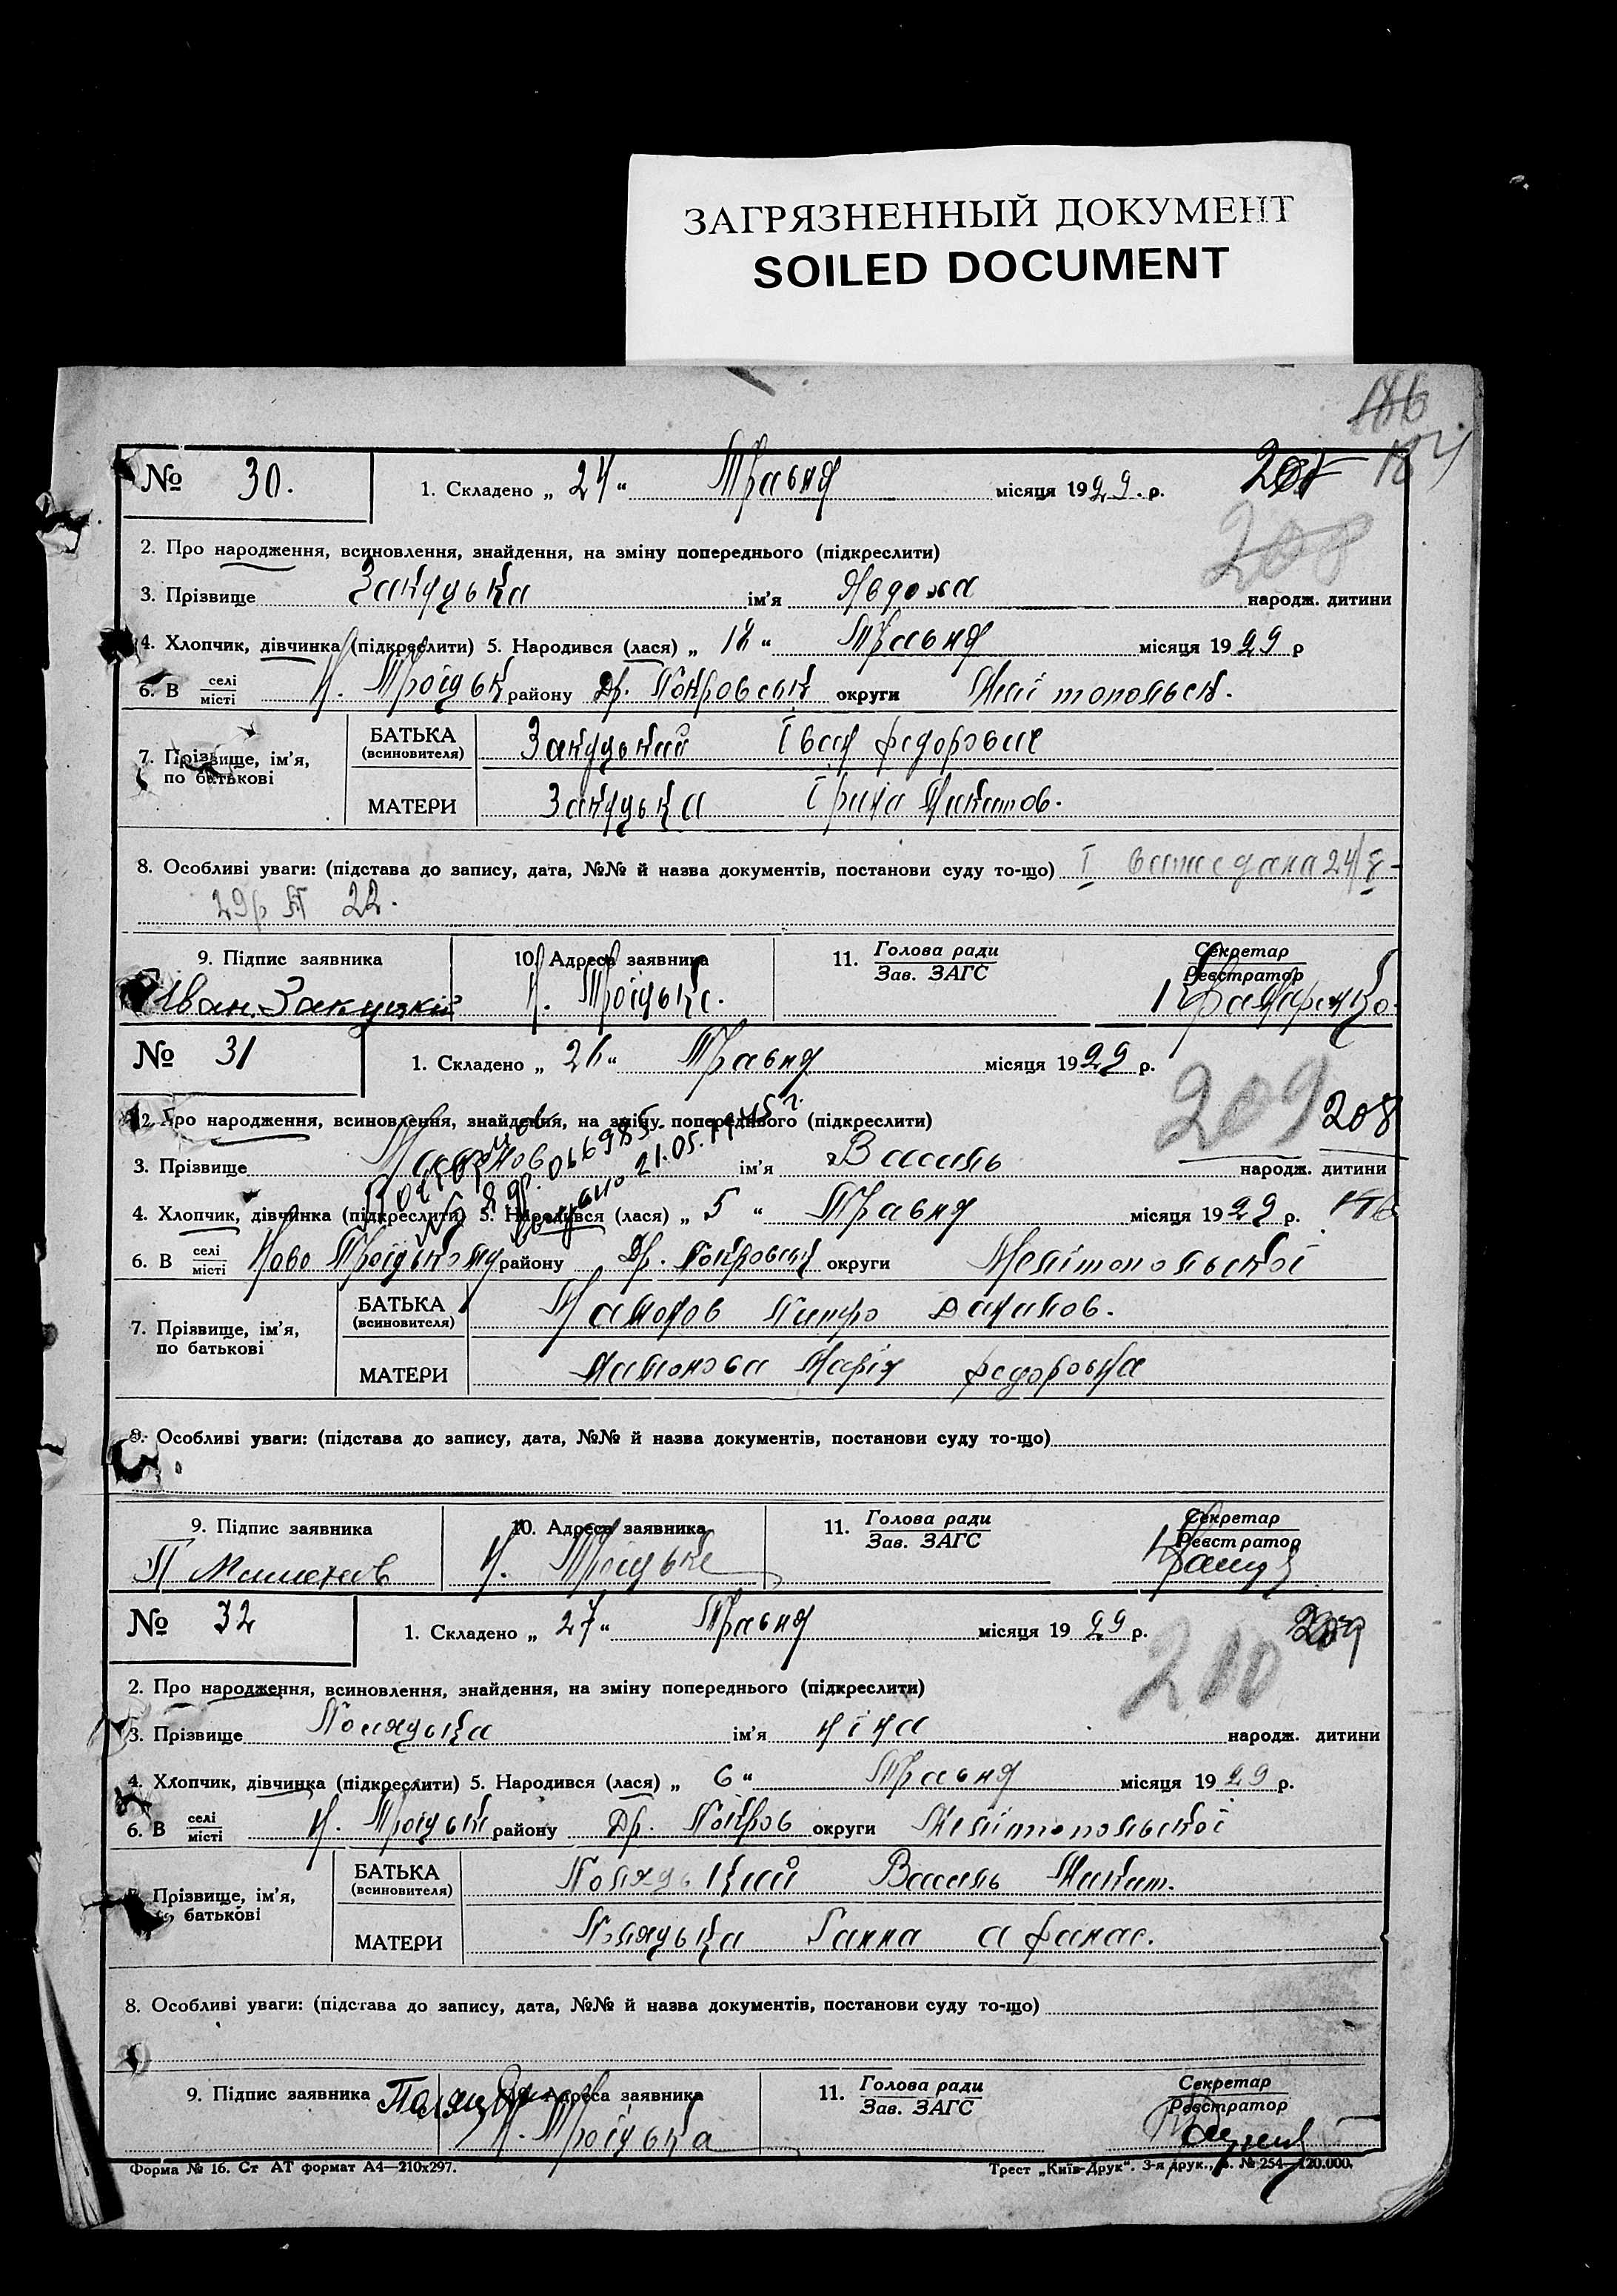 ЗАГРЯЗНЕННЫЙ ДОКУМЕНТ
SOILED DOCUMENT
№ 30. 1. Складено „ 24 “ Травня місяця 1929. р.
208
2. Про народження, всиновлення, знайдення, на зміну попереднього (підкреслити)
3. Прізвище Закуцька ім'я Явдоха народж. дитини
4. Хлопчик, дівчинка (підкреслити) 5. Народився (лася) „ 12 “ Травня місяця 1929 р
6. В селі місті Н. Троіцьк району Др. Покровськ округи Мелітопольськ.
7. Прізвище, ім'я, по батькові
БАТЬКА (всиновителя) Закуцький Іван Федорович
МАТЕРИ Закуцька Ірина Микитов.
8. Особливі уваги: (підстава до запису, дата, №№ й назва документів, постанови суду то-що) 24/V-
29р № 22.
9. Підпис заявника 10. Адреса заявника 11. Голова ради Зав. ЗАГС Секретар Реєстратор
Иван Закуцкий Н. Троіцьке.
№ 31 1. Складено „ 26 “ Травня місяця 1929 р.
209 208
2. Про народження, всиновлення, знайдення, на зміну попереднього (підкреслити)
3. Прізвище Мамонов ім'я Василь народж. дитини
21.05.1945 г.
4. Хлопчик, дівчинка (підкреслити) 5. Народився (лася) „ 5 “ Травня місяця 1929 р.
6. В селі місті Ново Троіцькому району Др. Покровськ округи Мелітопольськоі
7. Прізвище, ім'я, по батькові
БАТЬКА (всиновителя) Мамонов Питро Данилов.
МАТЕРИ Мамонова Марія Федоровна
8. Особливі уваги: (підстава до запису, дата, №№ й назва документів, постанови суду то-що)
9. Підпис заявника 10. Адреса заявника 11. Голова ради Зав. ЗАГС Секретар Реєстратор
П Мамонов Н. Троіцьке
№ 32 1. Складено „ 27 “ Травня місяця 1929 р.
210
2. Про народження, всиновлення, знайдення, на зміну попереднього (підкреслити)
3. Прізвище Поляцька ім'я Ніна народж. дитини
4. Хлопчик, дівчинка (підкреслити) 5. Народився (лася) „ 6 “ Травня місяця 1929 р.
6. В селі місті Н. Троіцьке району Др. Покров округи Мелітопольськоі
7. Прізвище, ім'я, по батькові
БАТЬКА (всиновителя) Поляцький Василь Микит.
МАТЕРИ Поляцька Ганна Афанас.
8. Особливі уваги: (підстава до запису, дата, №№ й назва документів, постанови суду то-що)
9. Підпис заявника 10. Адреса заявника 11. Голова ради Зав. ЗАГС Секретар Реєстратор
Н. Троіцька
Форма № 16. Ст АТ формат А4—210х297. Трест „Київ-Друк“. 3-я друк., з. № 254—120.000.